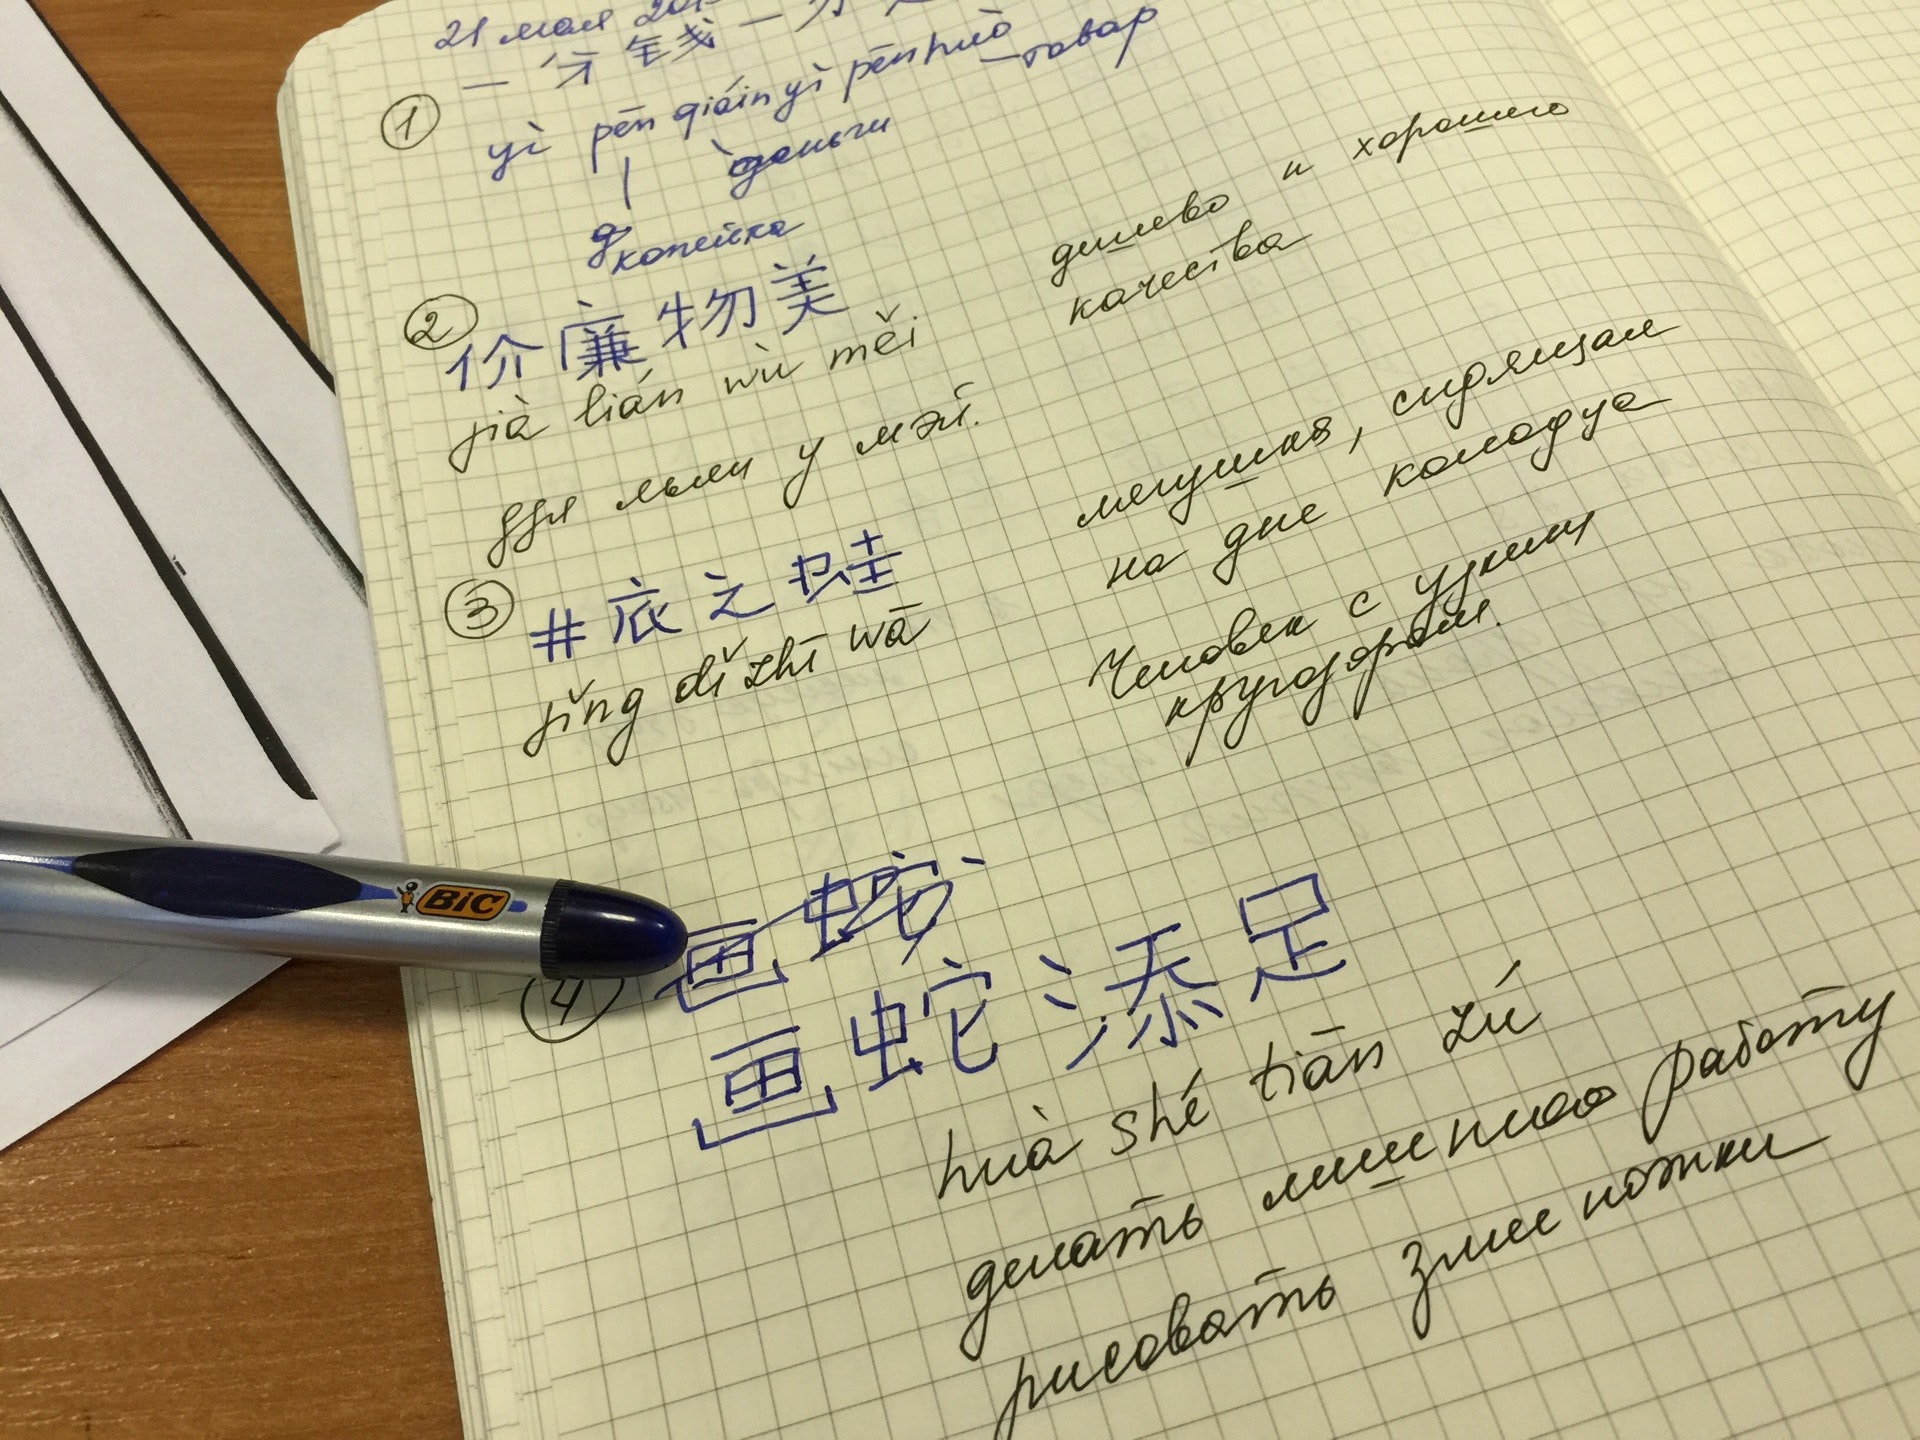 21 мая 201
一分钱一分
① yì pēn qiáin yì pēn huò
— товар
деньги
копейка
② 价廉物美
jià lián wù měi
дешево и хорошего
качества
ддя льен у мэй.
③ 井底之蛙
jǐng dǐ zhī wā
лягушка, сидящая
на дне колодца
Человек с узким
кругозором.
BIC
画蛇
④ 画蛇添足
huà shé tiān zú
делать лишнюю работу
рисовать змее ножки